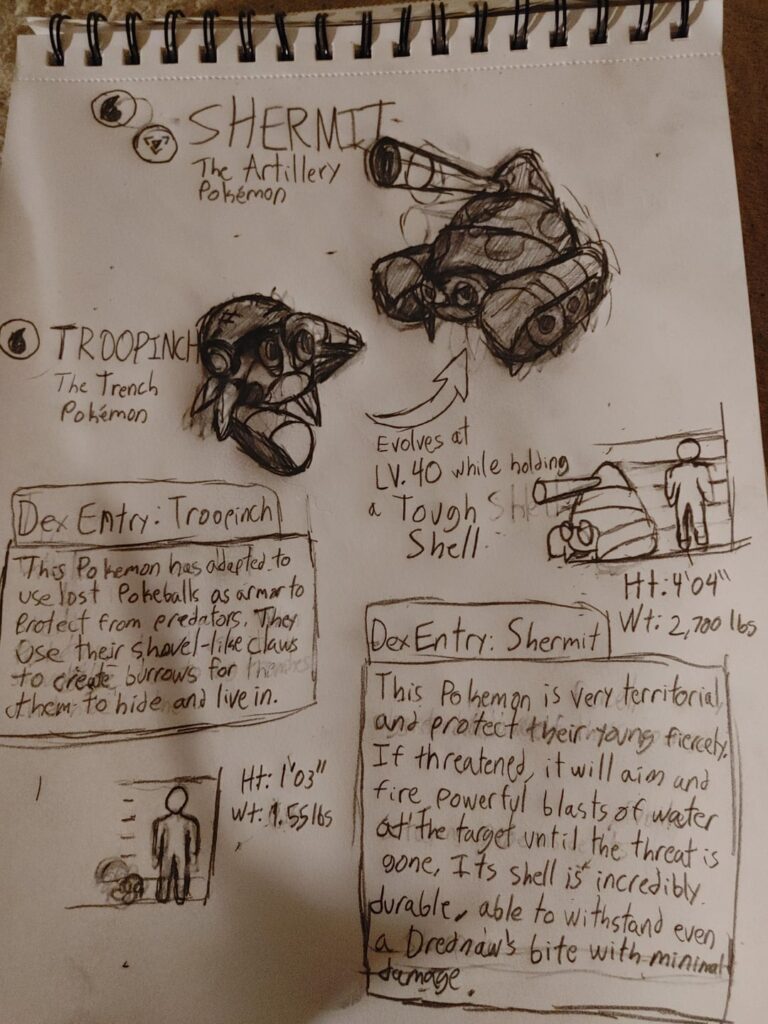 SHERMIT
The Artillery
Pokémon
TROOPINCH
The Trench
Pokémon
Evolves at
LV. 40 while holding
a Tough
Shell
Ht: 4'04"
Wt: 2,700 lbs
Dex Entry: Troopinch
This Pokemon has adapted to
use lost Pokeballs as armor to
Protect from predators. They
Use their shovel-like claws
to create burrows for
them to hide and live in.
Ht: 1'03"
Wt: 1.55 lbs
Dex Entry: Shermit
This Pokemon is very territorial
and protect their young fiercely.
If threatened, it will aim and
fire powerful blasts of water
at the target until the threat is
gone. Its shell is incredibly
durable, able to withstand even
a Drednaw's bite with minimal
damage.